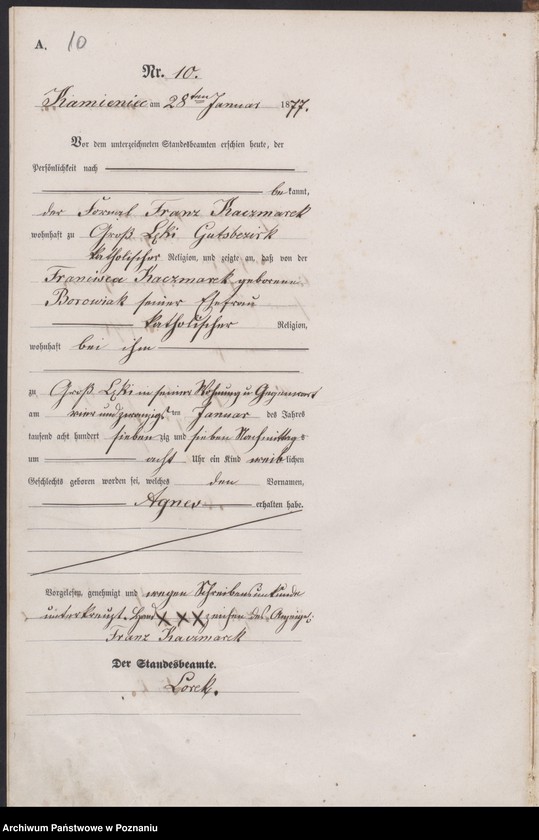 A. 10
Nr. 10.
Kamieniec am 28ten Januar 1877.
Vor dem unterzeichneten Standesbeamten erschien heute, der
Persönlichkeit nach
bekannt,
der Fornal Franz Kaczmarek
wohnhaft zu Groß Łęki Gutsbezirk
katholischer Religion, und zeigte an, daß von der
Francisca Kaczmarek geborenen
Borowiak seiner Ehefrau
katholischer Religion,
wohnhaft bei ihm
zu Groß Łęki in seiner Wohnung u Gegenwart
am vier und zwanzigsten Januar des Jahres
tausend acht hundert siebenzig und sieben Nachmittags
um acht Uhr ein Kind weiblichen
Geschlechts geboren worden sei, welches den Vornamen,
Agnes erhalten habe.
Vorgelesen, genehmigt und wegen Schreibensunkunde
unterkreuzt. Hand XXX zeichen des Anzeige:
Franz Kaczmarek
Der Standesbeamte.
Lorek.
Archiwum Państwowe w Poznaniu